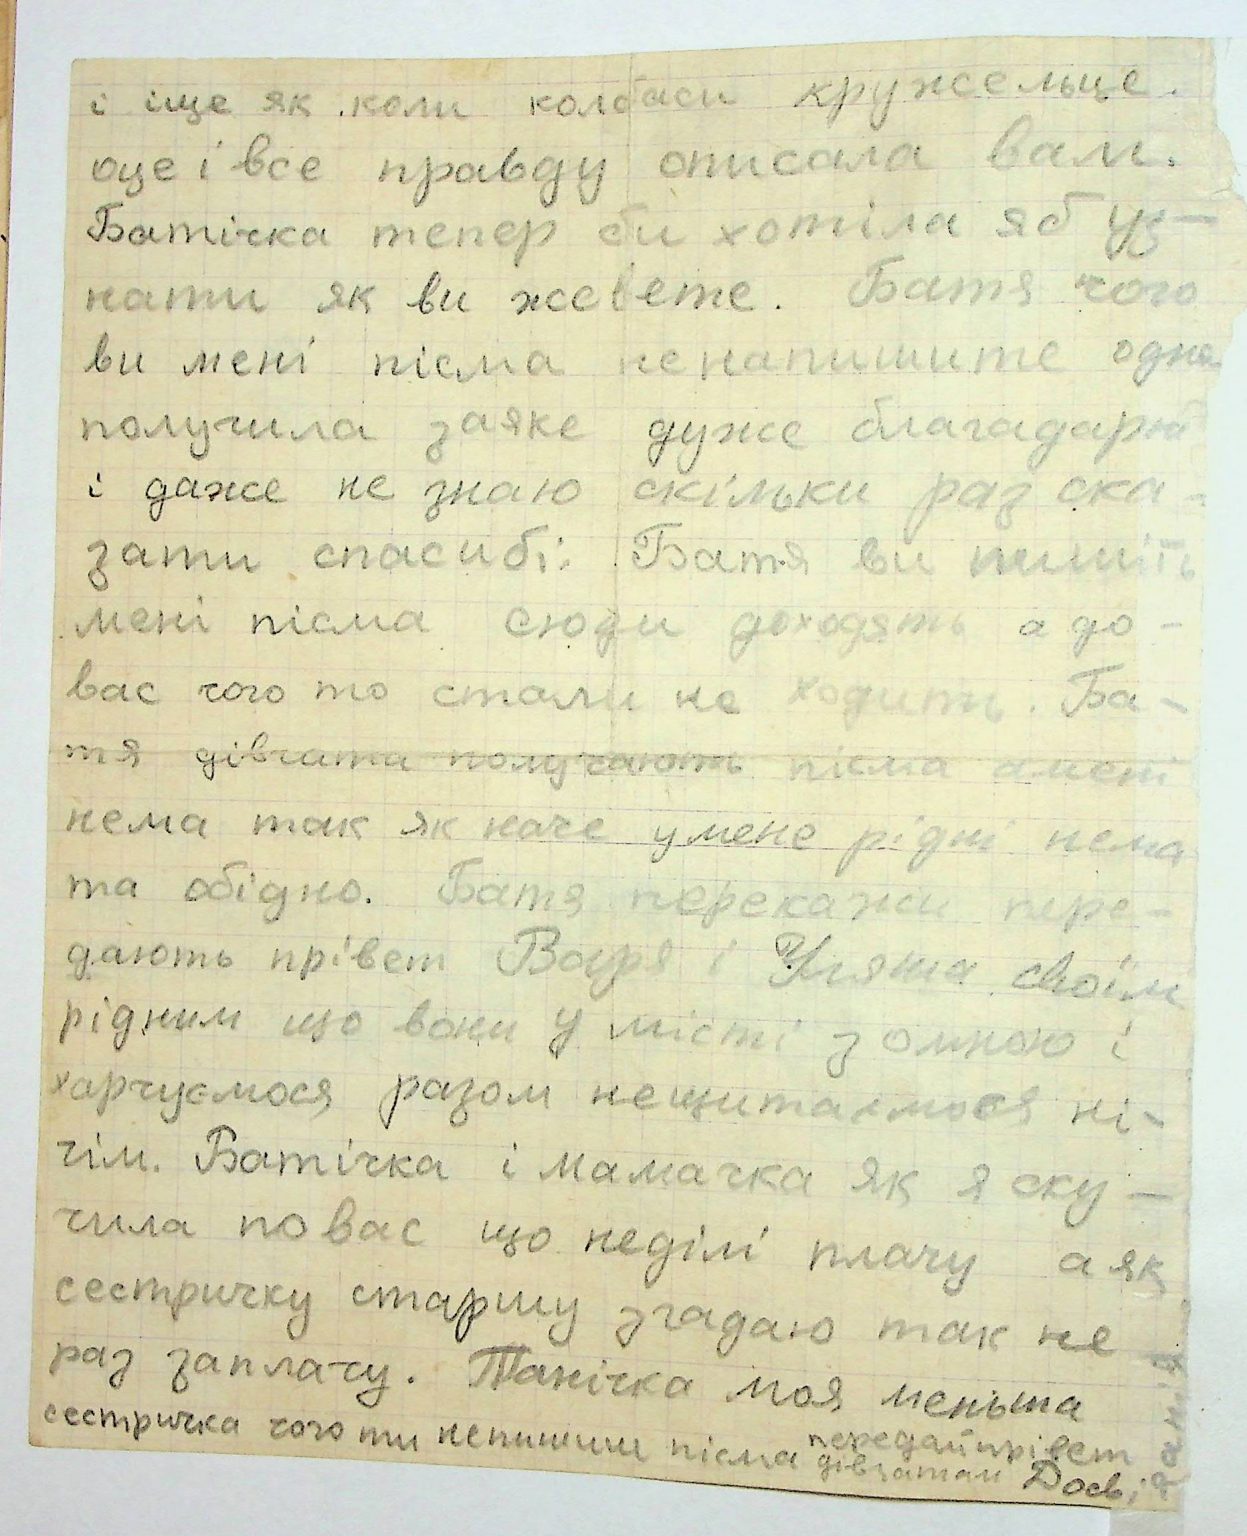 і іще як коли колбаси кружельце.
оце і все правду описала вам.
Батічка тепер би хотіла я б уз-
нати як ви жевете. Батя чого
ви мені пісма ненапишите одно
получила заяке дуже благадарю
і даже не знаю скільки раз ска-
зати спасибі. Батя ви пишіть
мені пісма сюди доходять а до-
вас чого то стали не ходить. Ба-
тя дівчата получають пісма амені
нема так як наче умене рідні нема
та обідно. Батя перекажи пере-
дають прівет Варя і Уляна своїм
рідним що вони у місті зомною і
харчуємося разом нещитаємося ні-
чім. Батічка і мамачка як я ску-
чила по вас що неділі плачу а як
сестричку старшу згадаю так не
раз заплачу. Танічка моя меньша
сестричка чого ти непишиш пісма передай прівет
дівчатам Досві
данія